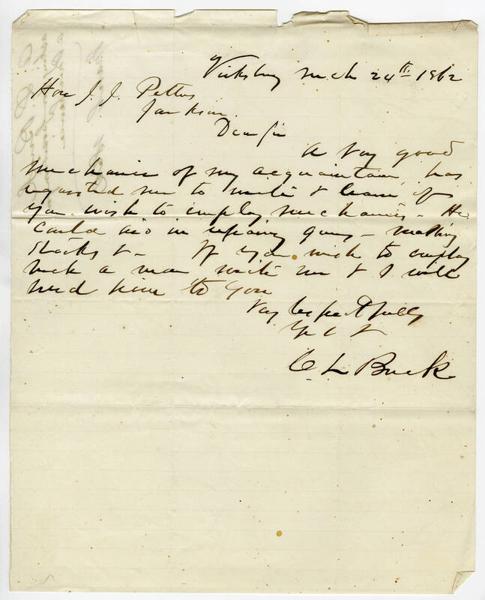 Vicksburg Mch 24th 1862
Hon J. J. Pettus
Jackson
Dear Sir
A very good
mechanic of my acquaintance has
requested me to write & learn if
you wish to employ mechanics - He
could aid in repairing guns - making
stocks &c - If you wish to employ
such a man write me & I will
send him to you
Very Respectfully
Yr O S
C L Buck